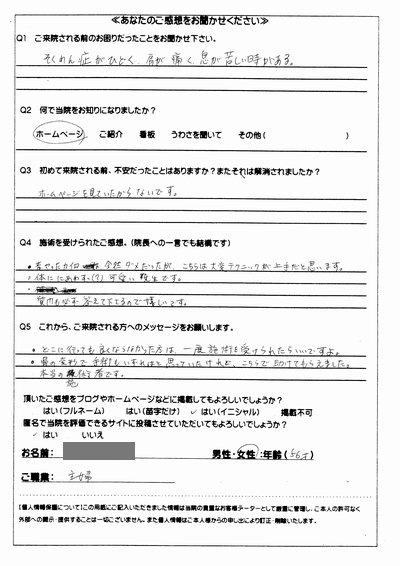 ≪あなたのご感想をお聞かせください≫
Q1 ご来院される前のお困りだったことをお聞かせ下さい。
そくわん症がひどく、肩が痛く、息が苦しい時がある。
Q2 何で当院をお知りになりましたか?
ホームページ ご紹介 看板 うわさを聞いて その他( )
Q3 初めて来院される前、不安だったことはありますか?またそれは解消されましたか?
ホームページを見ていたからないです。
Q4 施術を受けられたご感想、(院長への一言でも結構です)
全然ダメだったが、こちらは大変テクニックが上手だと思います。
・体ににあわず、(?)可愛い先生です。
質問も必ず答えて下さるので嬉しいです。
Q5 これから、ご来院される方へのメッセージをお願いします。
・どこに行っても良くならなかった方は、一度施術を受けられたらいいですよ。
・骨の変形で手術もしなければと思っていたけれど、こちらで助けてもらえました。
本当の施術者です。
頂いたご感想をブログやホームページなどに掲載してもよろしいでしょうか?
はい(フルネーム) はい(苗字だけ) ✓はい(イニシャル) 掲載不可
匿名で当院を評価できるサイトに投稿させていただいてもよろしいでしょうか?
✓はい いいえ
お名前: 男性・女性:年齢(56才)
ご職業: 主婦
【個人情報保護について】この用紙にご記入いただきました情報は当院の貴重なお客様データーとして厳重に管理し、ご本人の許可なく
外部への開示・提供することは一切ございません。また個人情報はご本人様からの申し出により訂正・削除いたします。